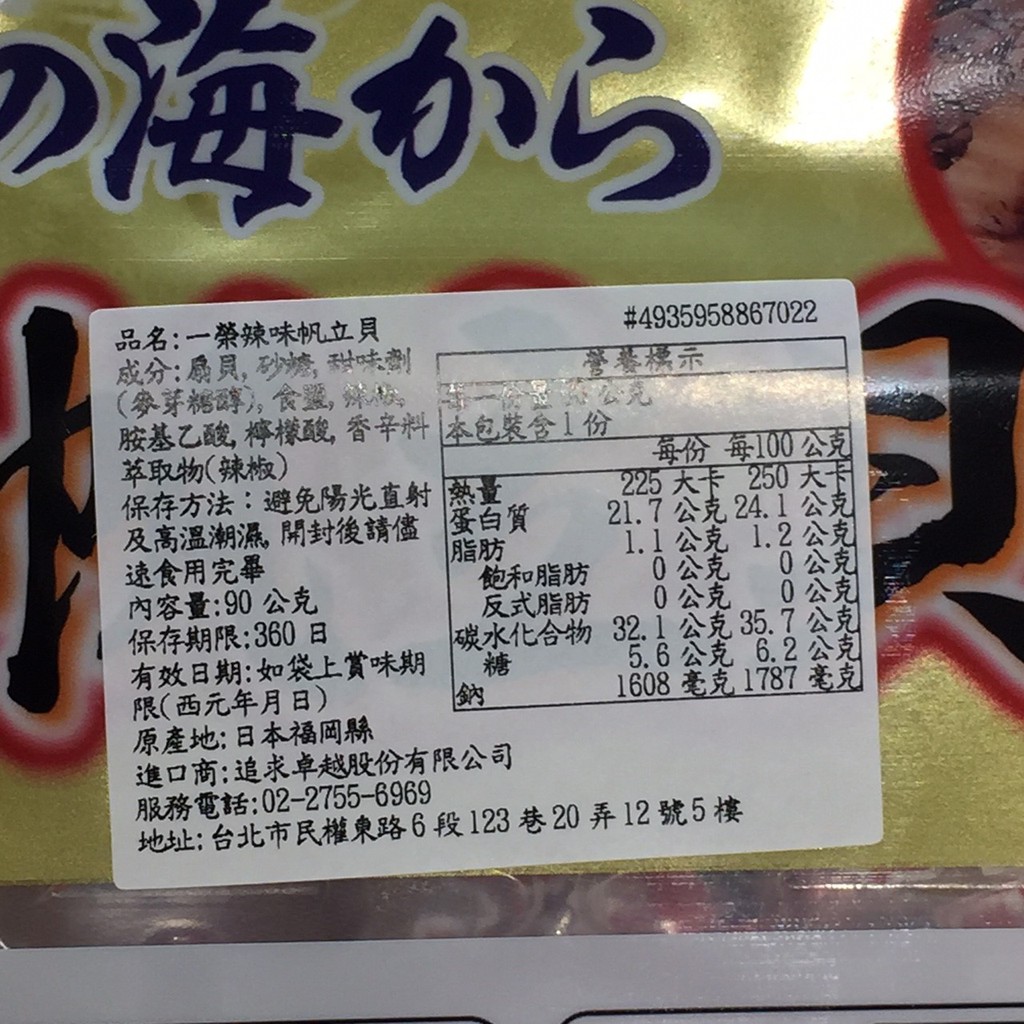 の海から
#4935958867022
品名:一榮辣味帆立貝
成分:扇貝, 砂糖, 甜味劑
(麥芽糖醇), 食鹽, 辣椒,
胺基乙酸, 檸檬酸, 香辛料
萃取物(辣椒)
保存方法:避免陽光直射
及高溫潮濕, 開封後請儘
速食用完畢
內容量:90 公克
保存期限:360 日
有效日期:如袋上賞味期
限(西元年月日)
原產地:日本福岡縣
進口商:追求卓越股份有限公司
服務電話:02-2755-6969
地址:台北市民權東路 6 段 123 巷 20 弄 12 號 5 樓
營養標示
每一份量 公克
本包裝含 1 份
每份 每100 公克
熱量 225 大卡 250 大卡
蛋白質 21.7 公克 24.1 公克
脂肪 1.1 公克 1.2 公克
飽和脂肪 0 公克 0 公克
反式脂肪 0 公克 0 公克
碳水化合物 32.1 公克 35.7 公克
糖 5.6 公克 6.2 公克
鈉 1608 毫克 1787 毫克